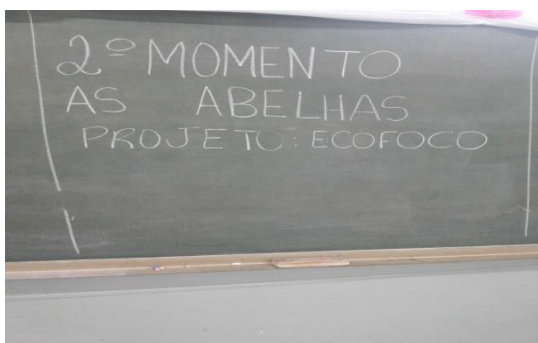 2º MOMENTO
AS ABELHAS
PROJETO: ECOFOCO